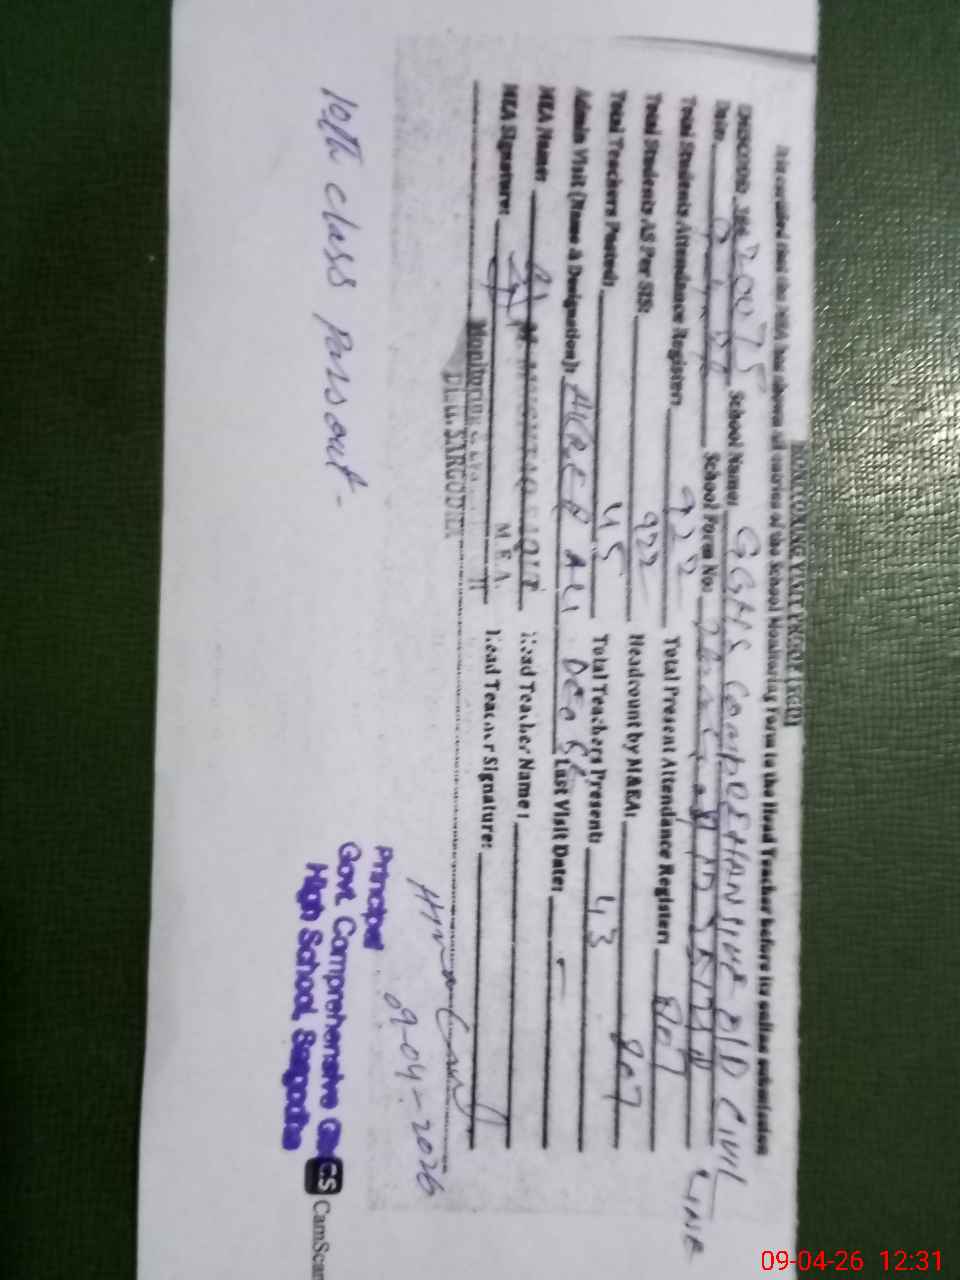 MONITORING VISIT PROOF (SED)
It is certified that the MEA has shown all entries of the School Monitoring Form to the Head Teacher before its online submission
EMISCODE: 38420075 School Name: GGHS COMPREHANSIVE OLD CIVIL LINE
Date: School Form No:
Total Students Attendance Register: 922 Total Present Attendance Register: 807
Total Students AS Per SIS: 922 Headcount by M&EA: 807
Total Teachers Posted: 45 Total Teachers Present: 43
Admin Visit (Name & Designation): ALI DEO SE Last Visit Date: -
MEA Name: Head Teacher Name:
MEA Signature: M.E.A. Head Teacher Signature:
Monitoring
Distt. SARGODHA
09-04-2026
Principal
Govt. Comprehensive Girls
High School, Sargodha
10th class pass out -
CS CamScan
09-04-26 12:31